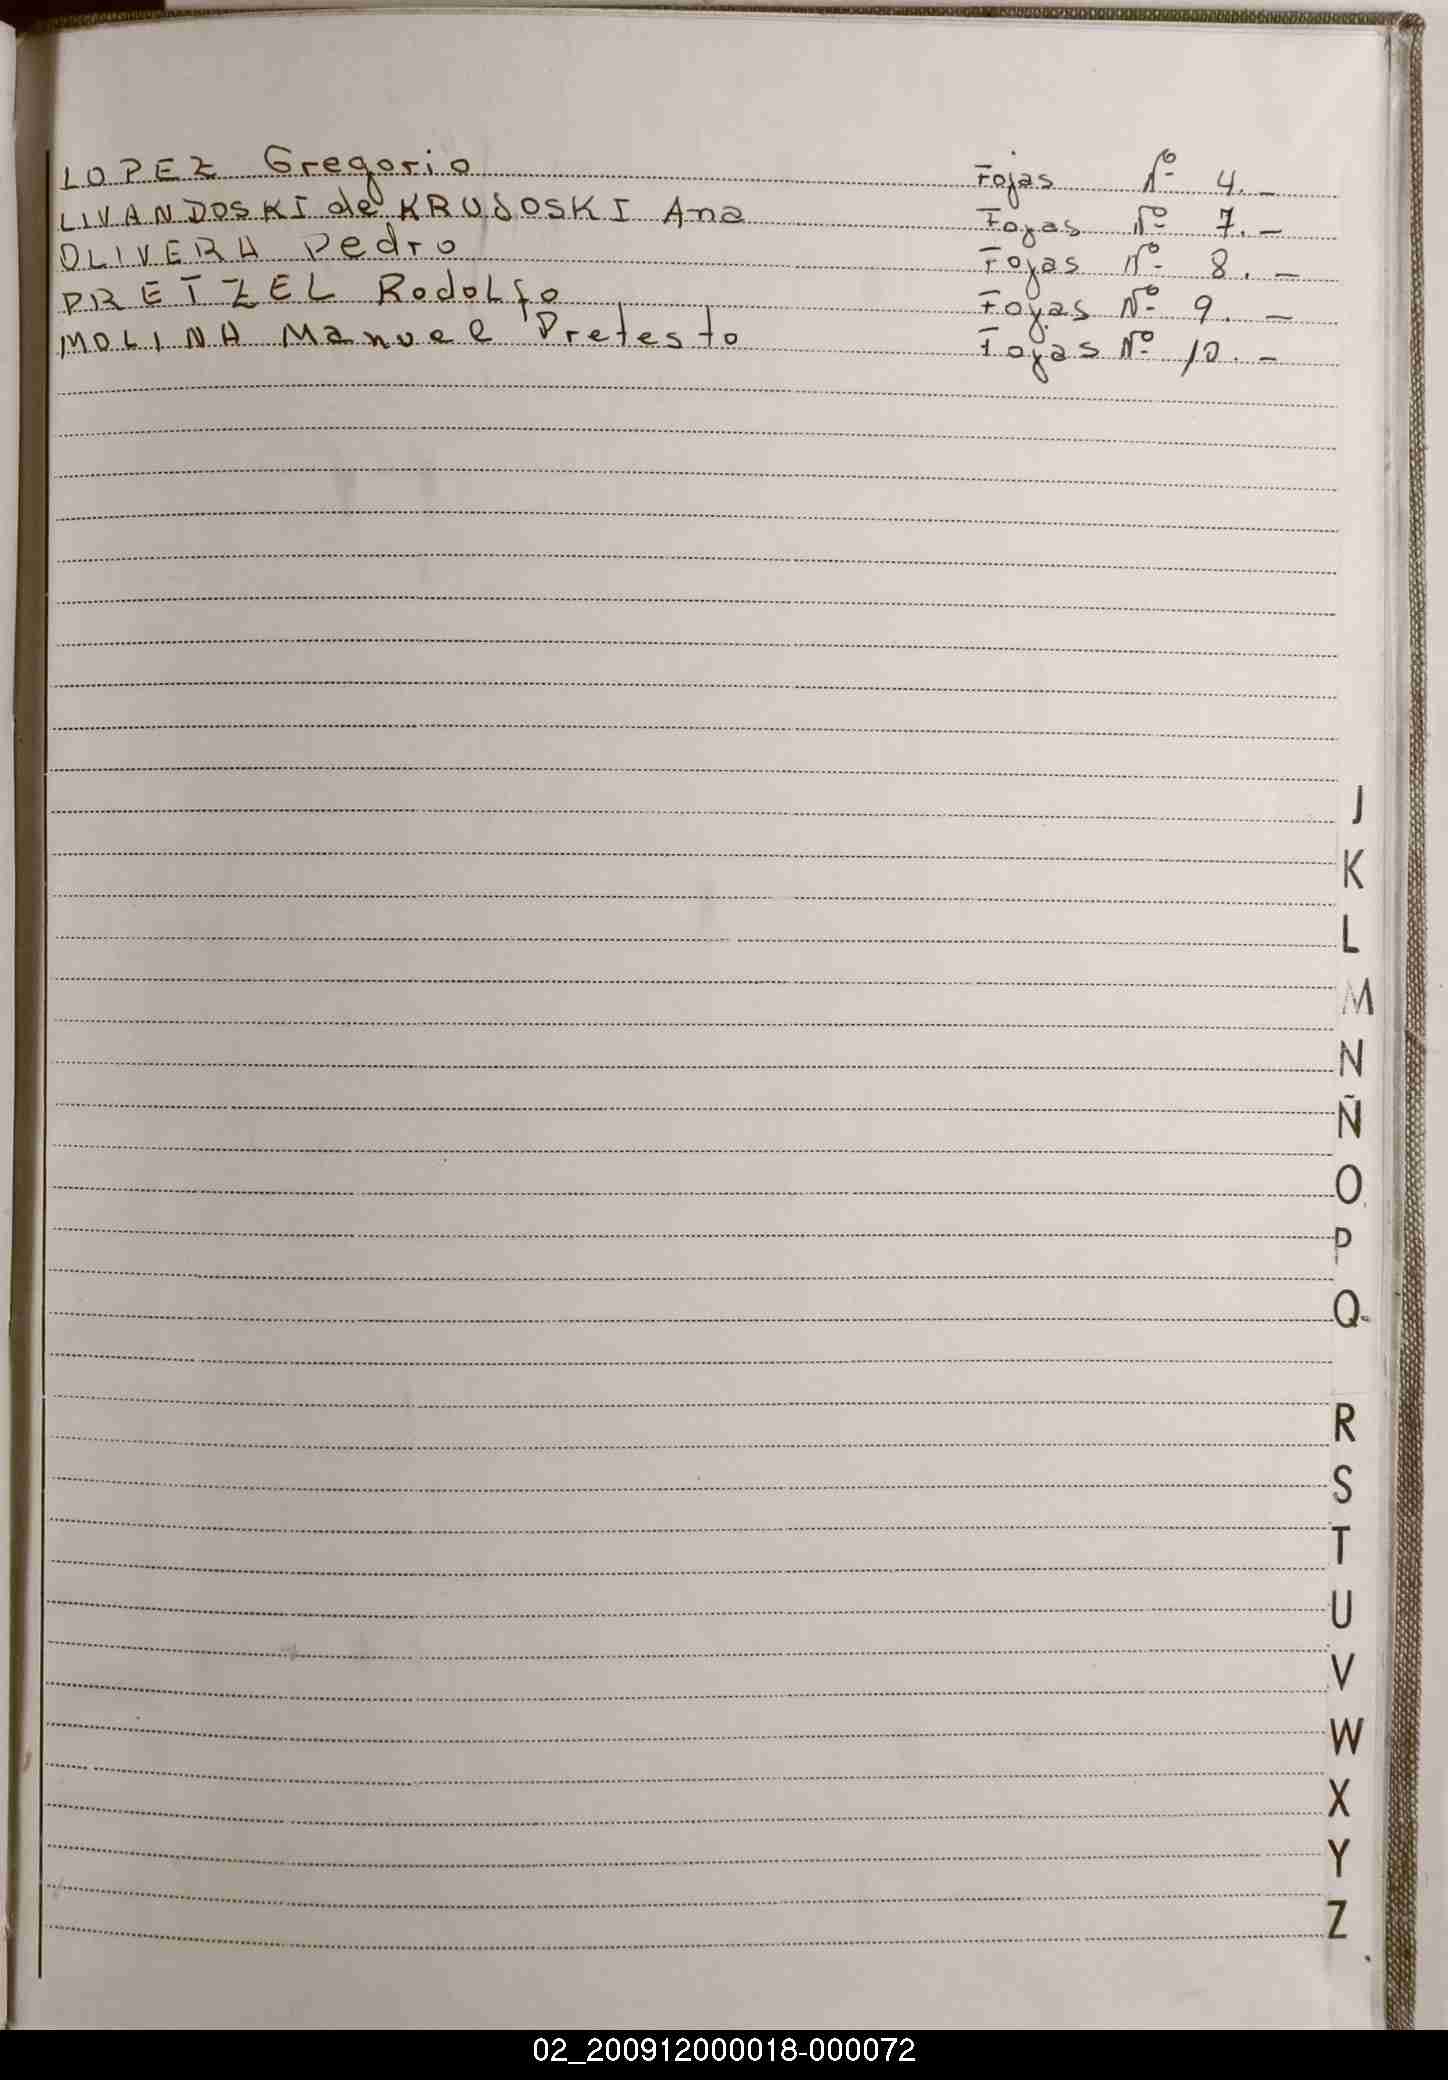 LOPEZ Gregorio Fojas Nº 4.-
LIVANDOSKI de KRUJOSKI Ana Fojas Nº 7.-
OLIVERA Pedro Fojas Nº 8.-
PRETZEL Rodolfo Fojas Nº 9.-
MOLINA Manuel Pretesto Fojas Nº 10.-
J
K
L
M
N
Ñ
O
P
Q
R
S
T
U
V
W
X
Y
Z
02_200912000018-000072